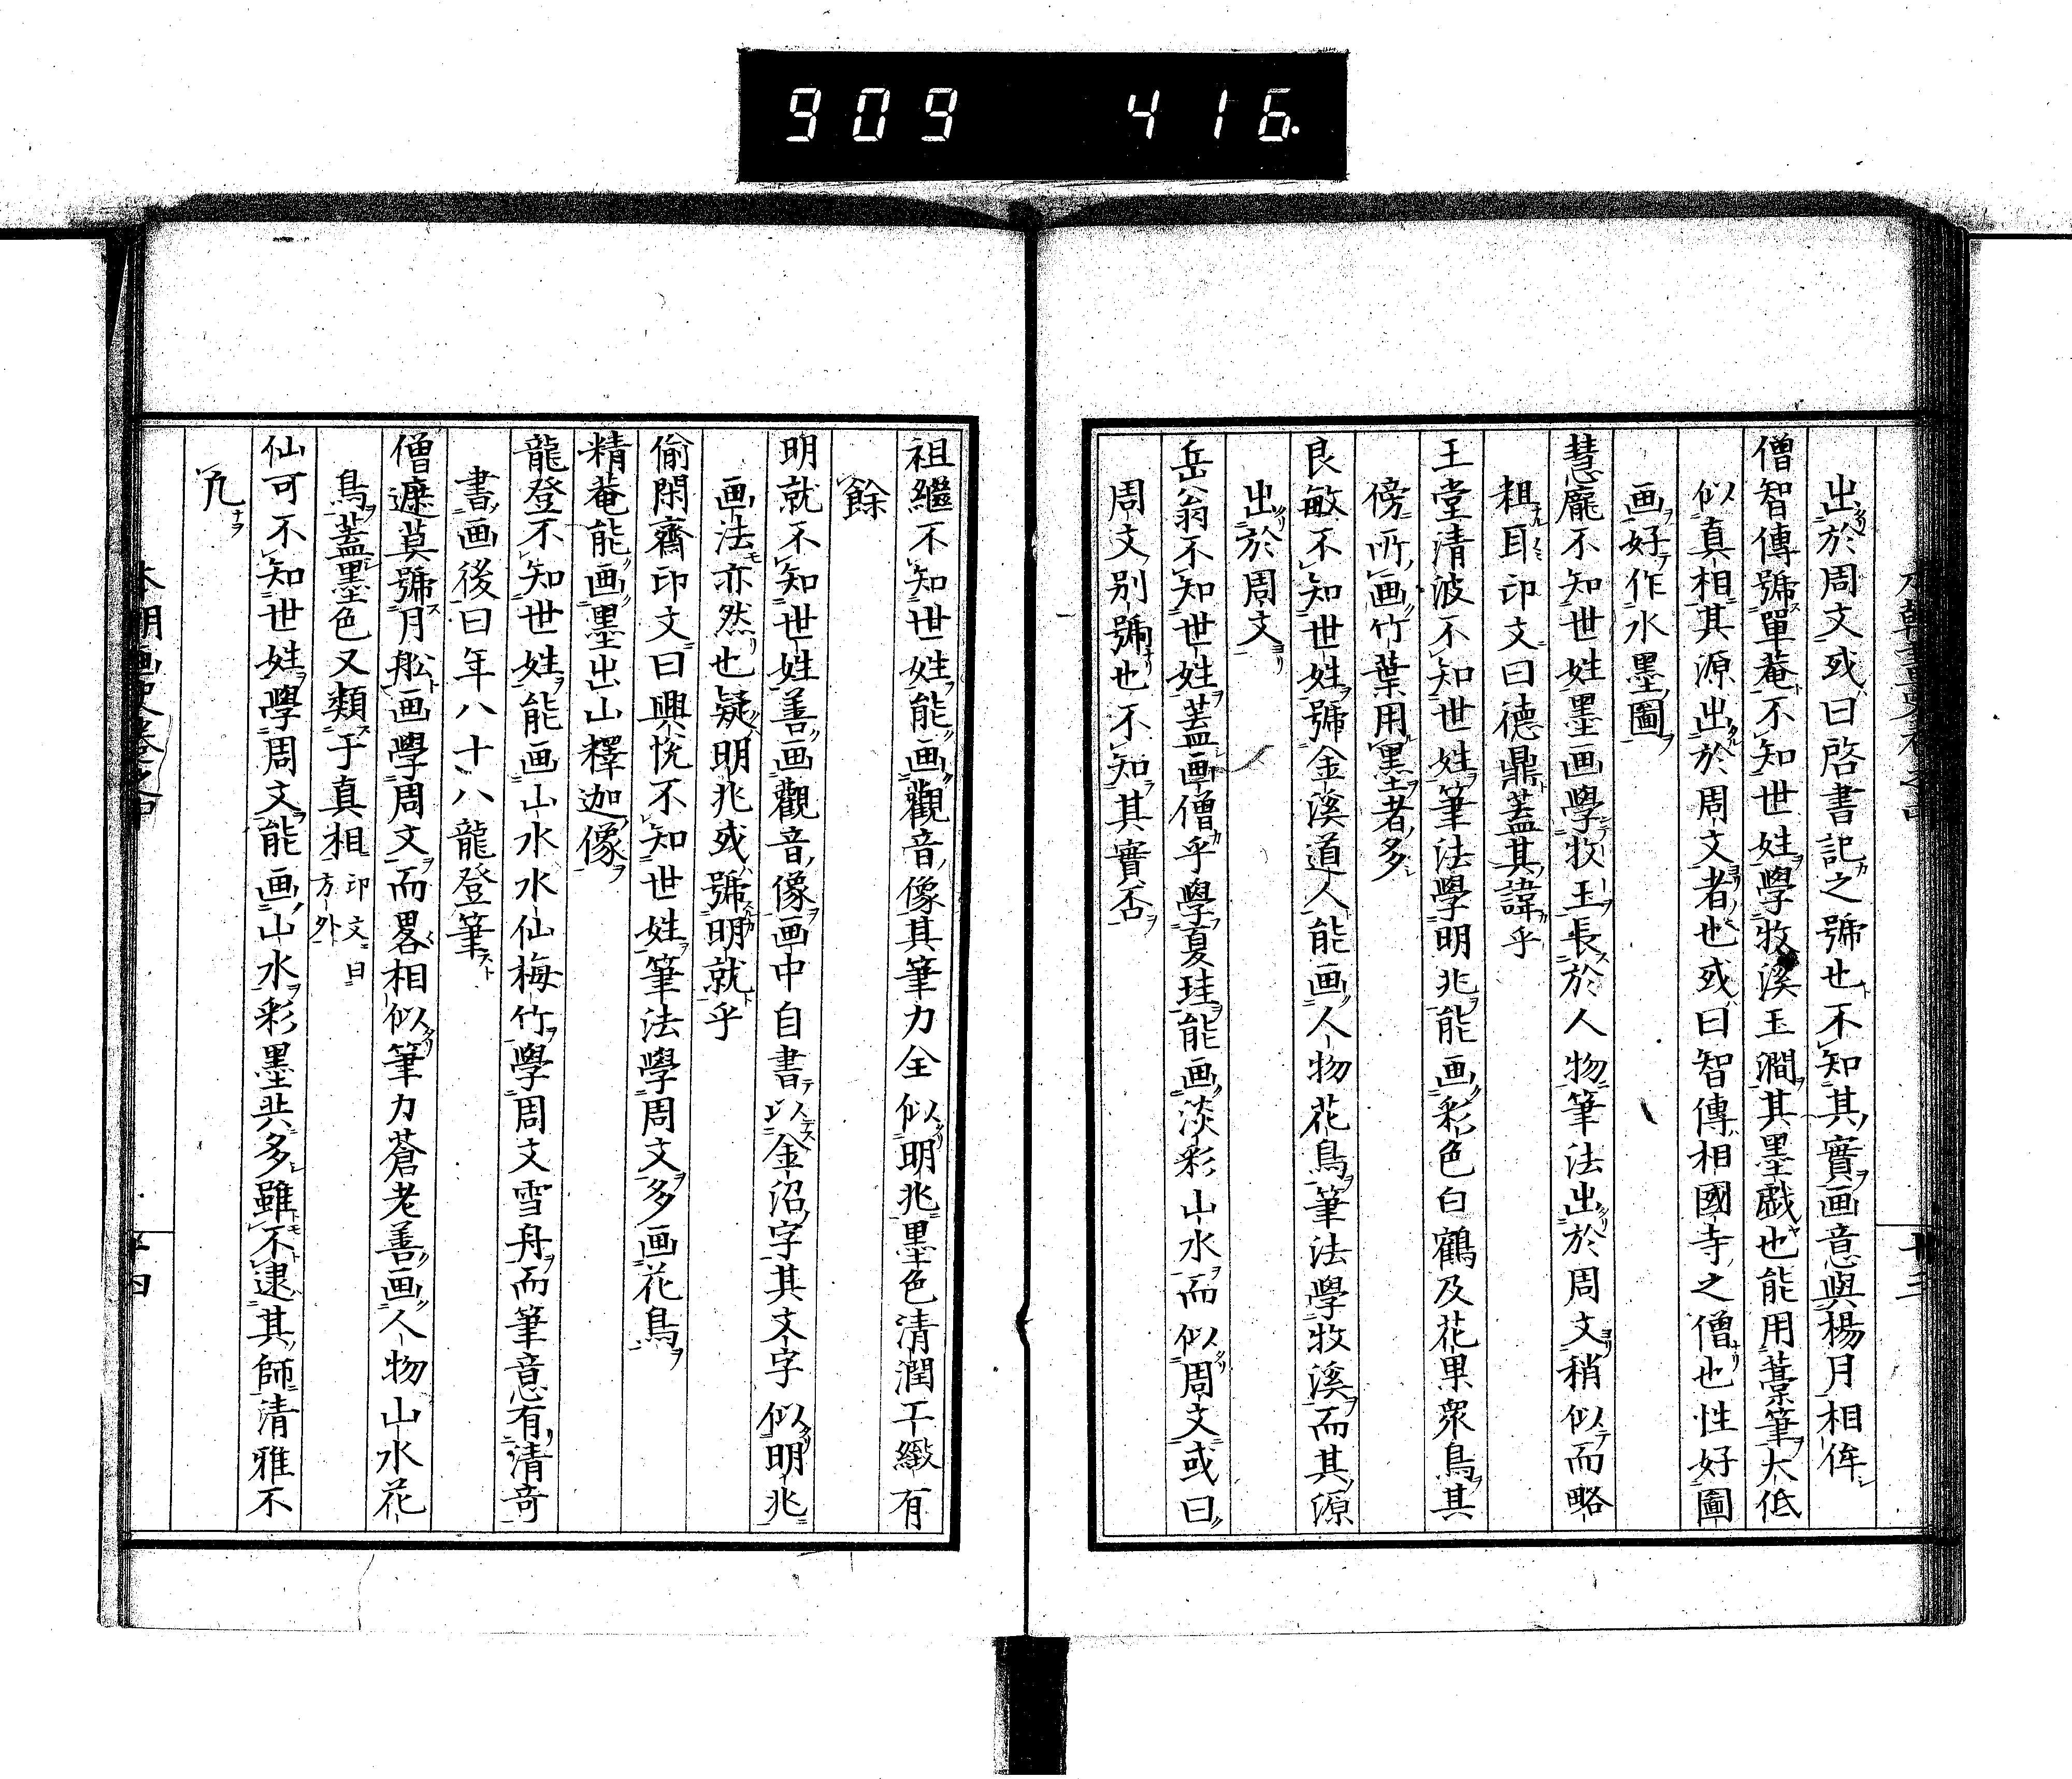 909 416
出於周文或曰啓書記之號也不知其實画意與楊月相侔
僧智傳號單菴不知世姓學牧溪玉澗其墨戯也能用藁筆大低
似真相其源出於周文者也或曰智傳相國寺之僧也性好圖
画好作水墨圖
慧龐不知世姓墨画學牧玉長於人物筆法出於周文稍似而略
粗耳印文曰德鼎蓋其諱乎
王堂清波不知世姓筆法學明兆能画彩色白鶴及花果衆鳥其
傍所画竹葉用墨者多
良敏不知世姓號金溪道人能画人物花鳥筆法學牧溪而其源
出於周文
岳翁不知世姓蓋画僧乎學夏珪能画淡彩山水而似周文或曰
周文別號也不知其實否
祖繼不知世姓能画觀音像其筆力全似明兆墨色清潤干緻有
餘
明就不知世姓善画觀音像画中自書以金沼字其文字似明兆
画法亦然也疑明兆或號明就乎
偷閑齋印文曰興悅不知世姓筆法學周文多画花鳥
精菴能画墨出山釋迦像
龍登不知世姓能画山水水仙梅竹學周文雪舟而筆意有清奇
書画後曰年八十八龍登筆
僧遽莫號月舩画學周文而畧相似筆力蒼老善画人物山水花
鳥蓋墨色又類于真相印文曰方外
仙可不知世姓學周文能画山水彩墨共多雖不逮其師清雅不
凡
本朝画史卷之中